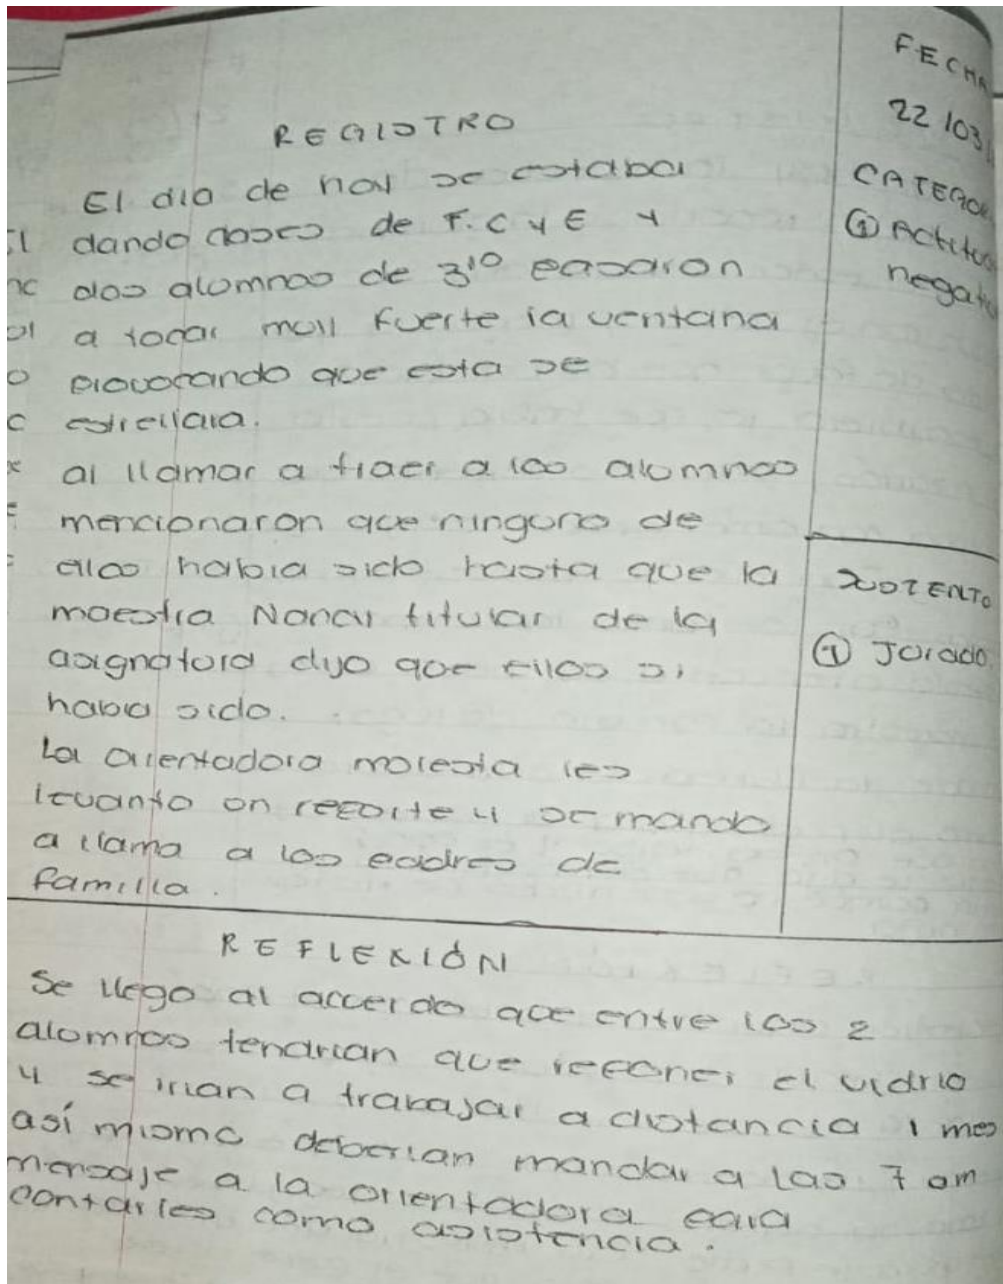 REGISTRO
El dia de hoy se estaba
dando clases de F.C y E y
dos alumnos de 3ro pasaron
a tocar muy fuerte la ventana
provocando que esta se
estrellara.
al llamar a traer a los alumnos
mencionaron que ninguno de
ellos habia sido hasta que la
maestra Nancy titular de la
asignatura dijo que Ellos si
haba sido.
La orientadora molesta les
levanto un reporte y se mando
a llama a los padres de
familia.
FECHA
22 103
CATEGO
① Actitud
negati
SUSTENTO
① Jurado
REFLEXIÓN
Se llego al accerdo que entre los 2
alumnos tendrian que reponer el vidrio
y se irian a trabajar a distancia 1 mes
así mismo deberian mandar a las 7 am
mensaje a la orientadora para
contarles como asistencia.